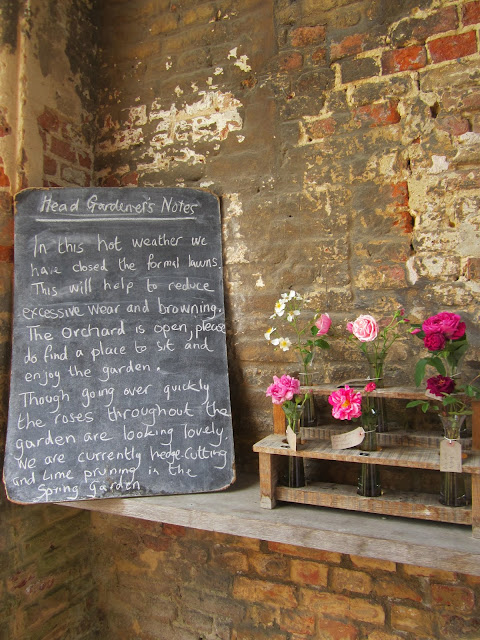 Head Gardener's Notes
In this hot weather we
have closed the formal lawns.
This will help to reduce
excessive wear and browning.
The Orchard is open, please
do find a place to sit and
enjoy the garden.
Though going over quickly
the roses throughout the
garden are looking lovely.
We are currently hedge-cutting
and Lime pruning in the
Spring Garden